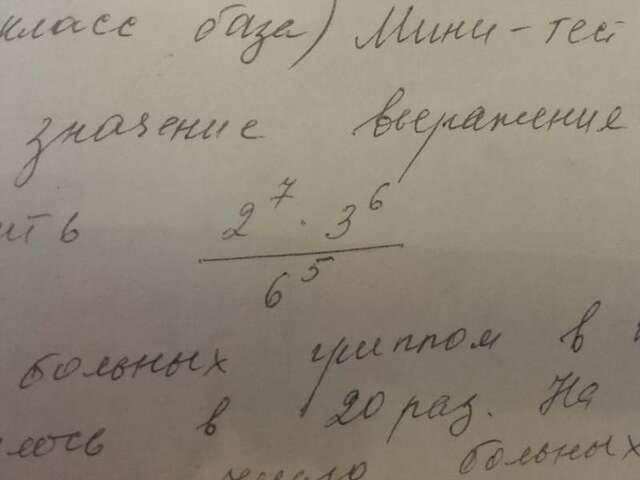 класс база) Мини-тест
значение выражение
ить 2^7 · 3^6 / 6^5
больных гриппом в
лось в 20 раз. На
число больных